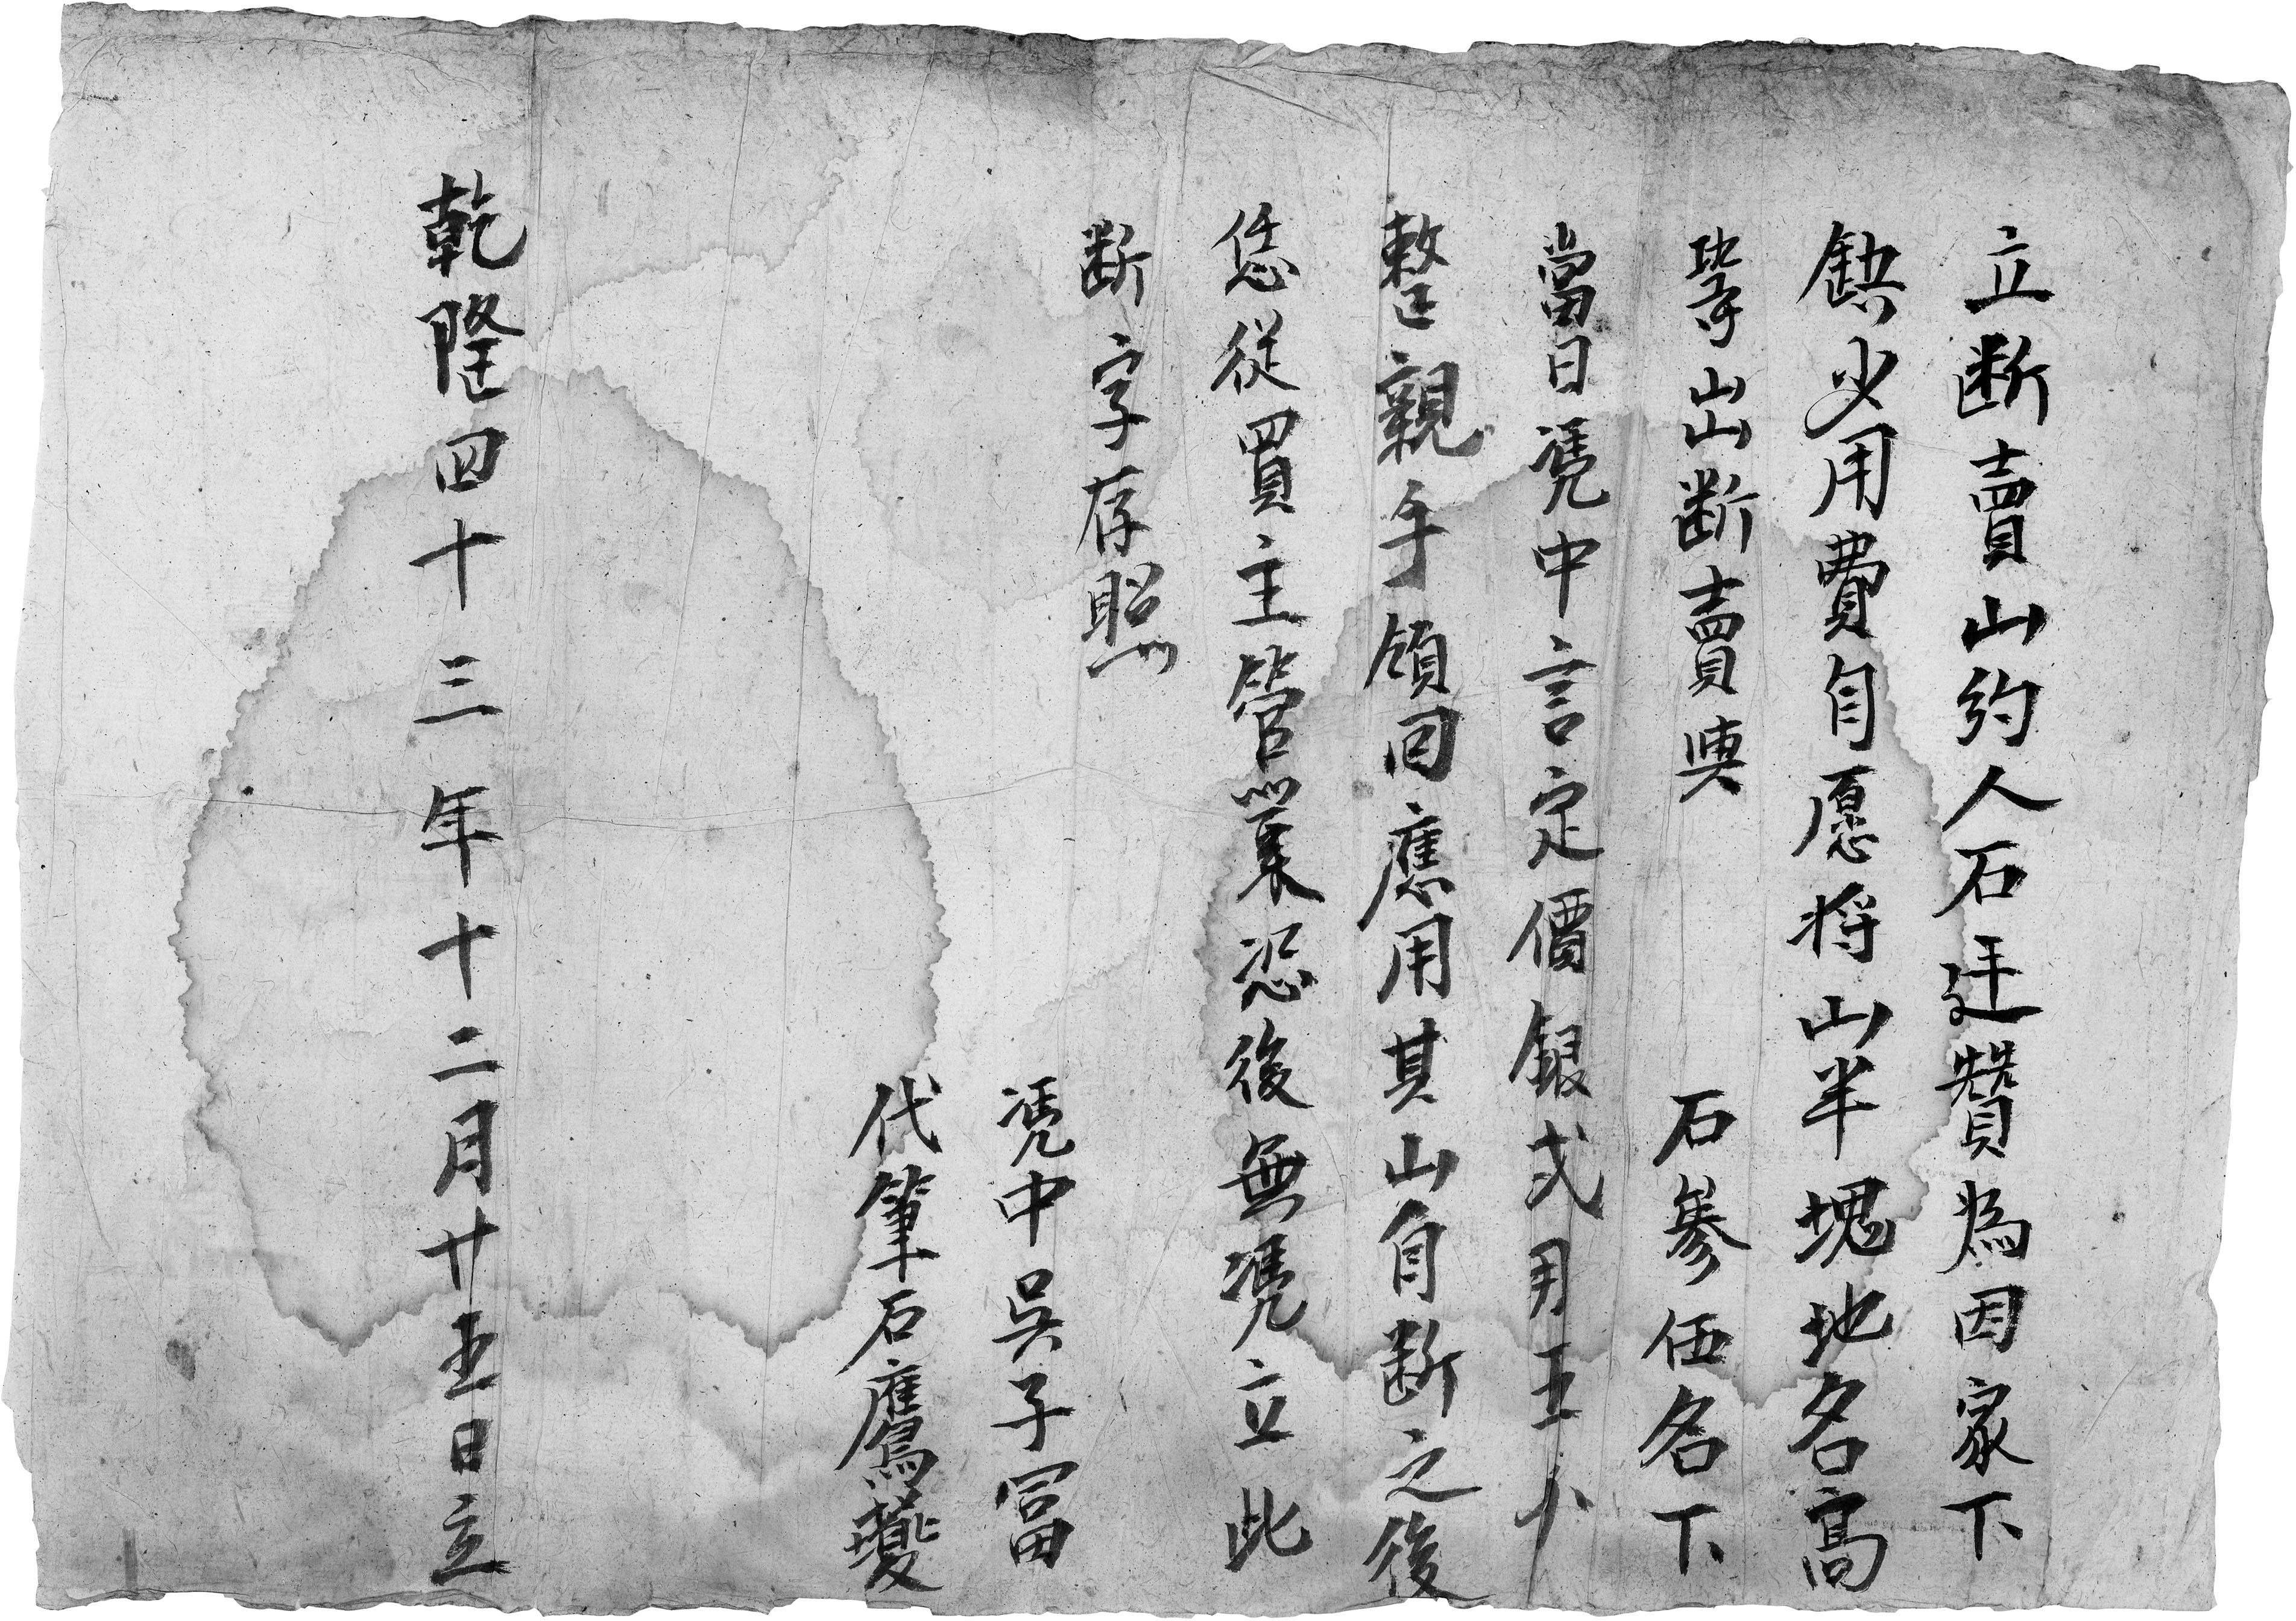 立断賣山約人石廷贊為因家下
缺少用費自愿将山半塊地名高
山断賣與　石參伍名下
當日憑中言定價銀弍用五卜
整親手領回應用其山自断之後
恁從買主管業恐後無憑立此
断字存照
憑中吳子冨
代筆石鷹
乾隆四十三年十二月廿五日立